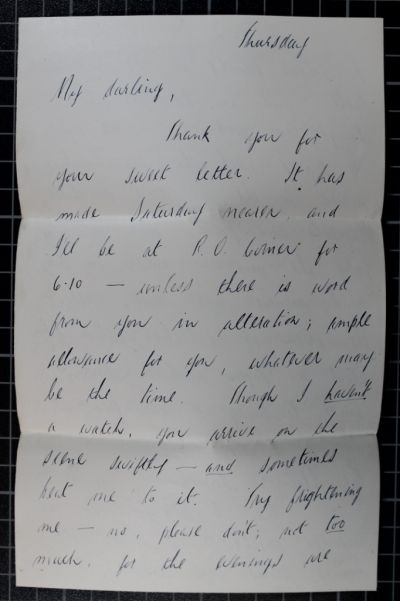 Thursday
My darling,
Thank you for
your sweet letter. It has
made Saturday nearer, and
I'll be at P.O. Corner for
6.10 — unless there is word
from you in alteration; ample
allowance for you, whatever may
be the time. Though I haven't
a watch, you arrive on the
scene swiftly — and sometimes
beat me to it. Try frightening
me — no, please don't; not too
much, for the evenings are